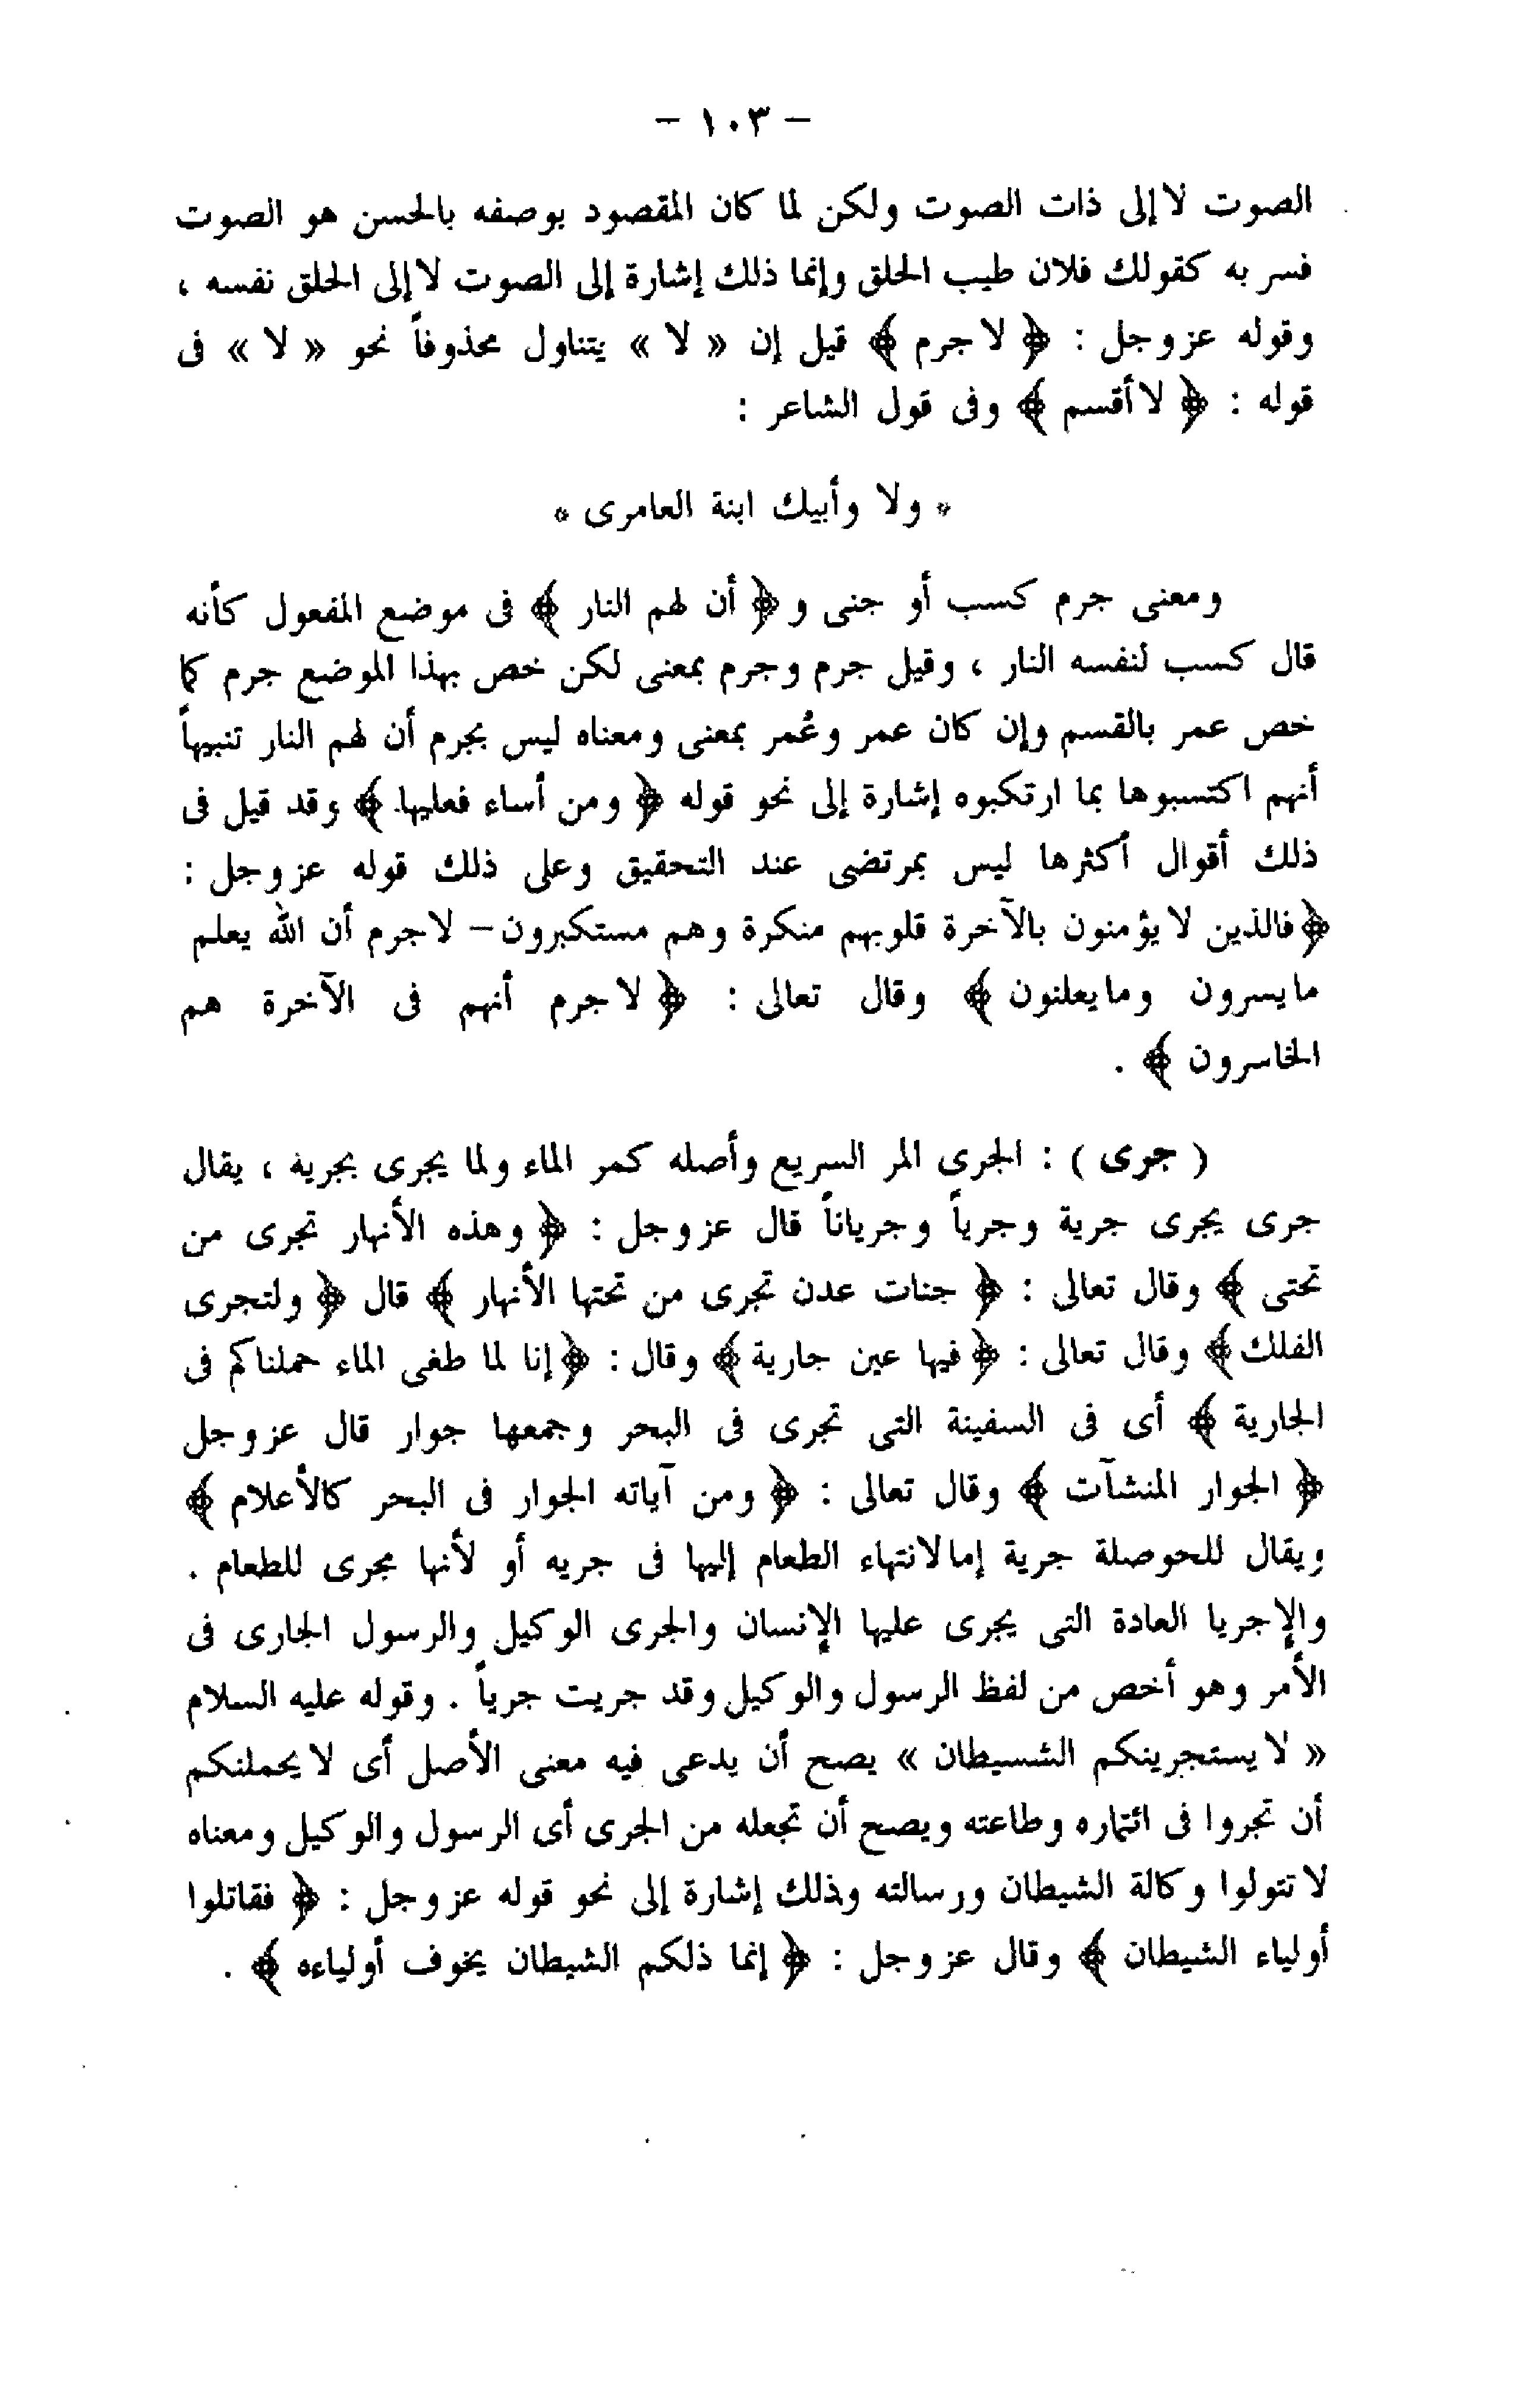 - ١٠٣ -
الصوت لا إلى ذات الصوت ولكن لما كان المقصود بوصفه بالحسن هو الصوت
فسر به كقولك فلان طيب الحلق وإنما ذلك إشارة إلى الصوت لا إلى الحلق نفسه ،
وقوله عز وجل : ﴿ لا جرم ﴾ قيل إن « لا » يتناول محذوفاً نحو « لا » فى
قوله : ﴿ لا أقسم ﴾ وفى قول الشاعر :
* ولا وأبيك ابنة العامرى *
ومعنى جرم كسب أو جنى و ﴿ أن لهم النار ﴾ فى موضع المفعول كأنه
قال كسب لنفسه النار ، وقيل جرم وجرم بمعنى لكن خص بهذا الموضع جرم كما
خص عمر بالقسم وإن كان عمر وعُمر بمعنى ومعناه ليس بجرم أن لهم النار تنبيهاً
أنهم اكتسبوها بما ارتكبوه إشارة إلى نحو قوله ﴿ ومن أساء فعليها ﴾ وقد قيل فى
ذلك أقوال أكثرها ليس بمرتضى عند التحقيق وعلى ذلك قوله عز وجل :
﴿ فالذين لا يؤمنون بالآخرة قلوبهم منكرة وهم مستكبرون - لا جرم أن الله يعلم
ما يسرون وما يعلنون ﴾ وقال تعالى : ﴿ لا جرم أنهم فى الآخرة هم
الخاسرون ﴾ .
( جرى ) : الجرى المر السريع وأصله كمر الماء ولما يجرى بجريه ، يقال
جرى يجرى جرية وجرياً وجرياناً قال عز وجل : ﴿ وهذه الأنهار تجرى من
تحتى ﴾ وقال تعالى : ﴿ جنات عدن تجرى من تحتها الأنهار ﴾ قال ﴿ ولتجرى
الفلك ﴾ وقال تعالى : ﴿ فيها عين جارية ﴾ وقال : ﴿ إنا لما طغى الماء حملناكم فى
الجارية ﴾ أى فى السفينة التى تجرى فى البحر وجمعها جوار قال عز وجل
﴿ الجوار المنشآت ﴾ وقال تعالى : ﴿ ومن آياته الجوار فى البحر كالأعلام ﴾
ويقال للحوصلة جرية إما لانتهاء الطعام إليها فى جريه أو لأنها مجرى للطعام .
والإجريا العادة التى يجرى عليها الإنسان والجرى الوكيل والرسول الجارى فى
الأمر وهو أخص من لفظ الرسول والوكيل وقد جريت جرياً . وقوله عليه السلام
« لا يستجرينكم الشسيطان » يصح أن يدعى فيه معنى الأصل أى لا يحملنكم
أن تجروا فى ائتماره وطاعته ويصح أن تجعله من الجرى أى الرسول والوكيل ومعناه
لا تتولوا وكالة الشيطان ورسالته وذلك إشارة إلى نحو قوله عز وجل : ﴿ فقاتلوا
أولياء الشيطان ﴾ وقال عز وجل : ﴿ إنما ذلكم الشيطان يخوف أولياءه ﴾ .